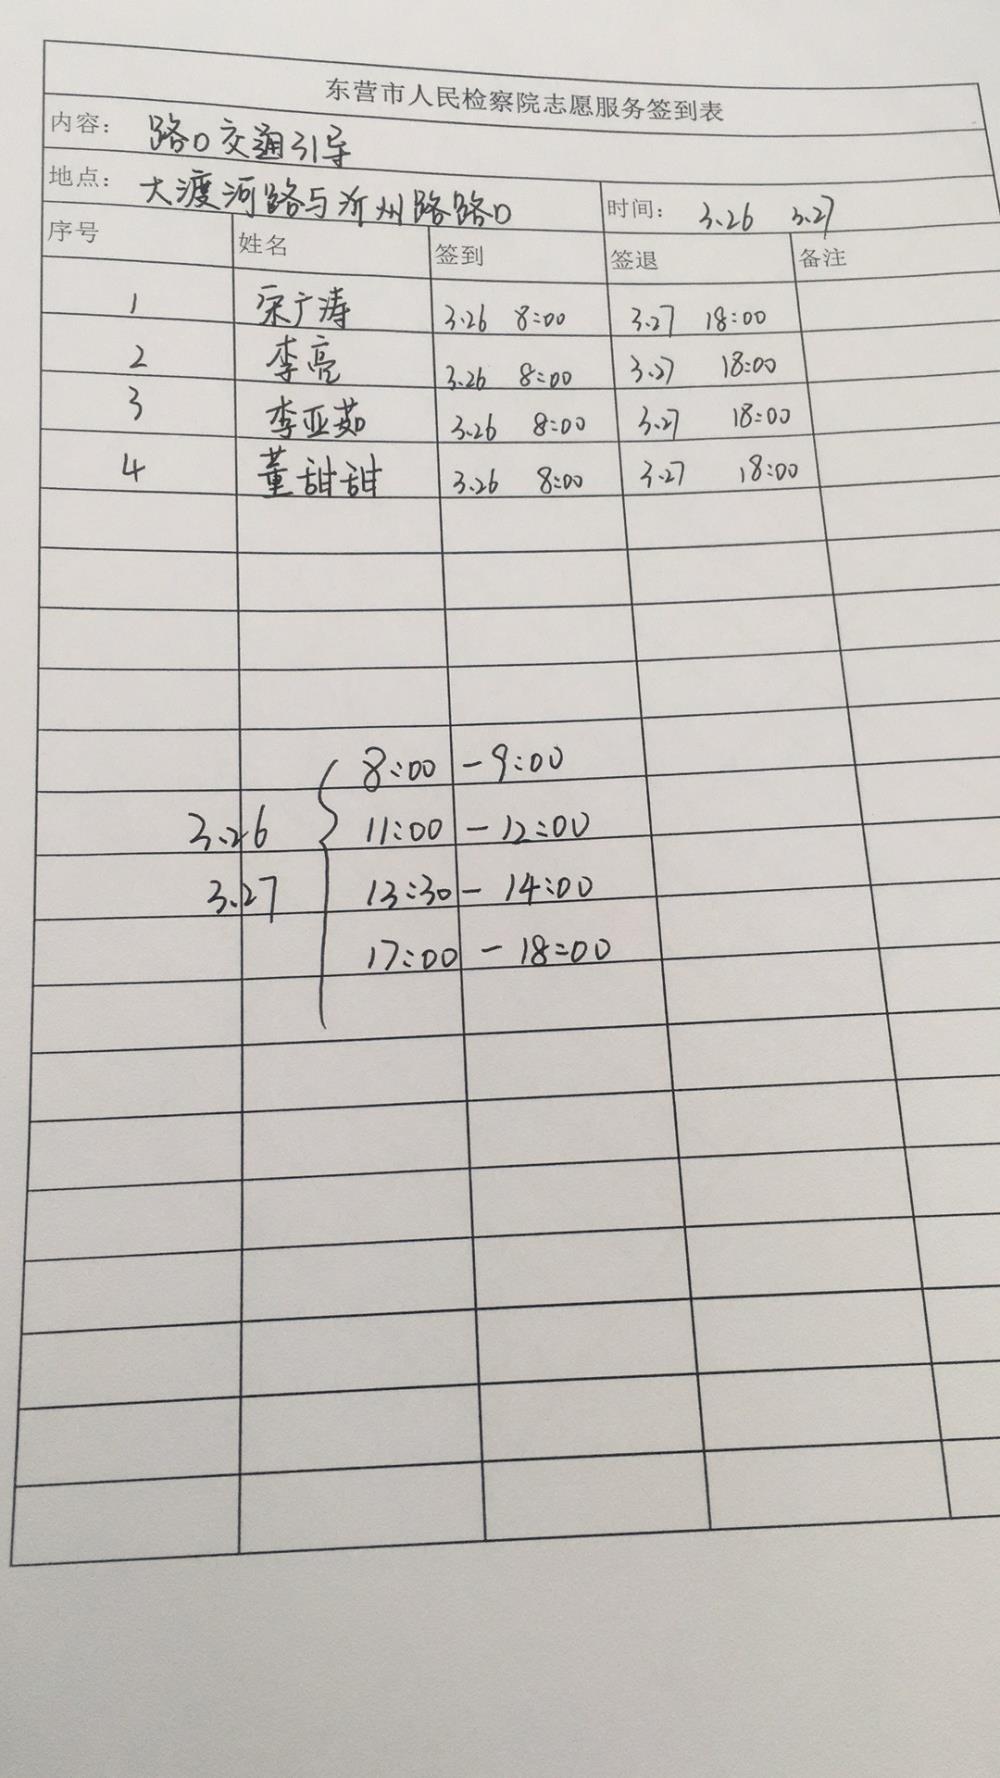 东营市人民检察院志愿服务签到表
内容： 路口交通引导
地点： 大渡河路与沂州路路口 时间： 3.26 3.27
序号 姓名 签到 签退 备注
1 宋广涛 3.26 8:00 3.27 18:00
2 李亮 3.26 8:00 3.27 18:00
3 李亚茹 3.26 8:00 3.27 18:00
4 董甜甜 3.26 8:00 3.27 18:00
8:00 - 9:00
3.26 11:00 - 12:00
3.27 13:30 - 14:00
17:00 - 18:00